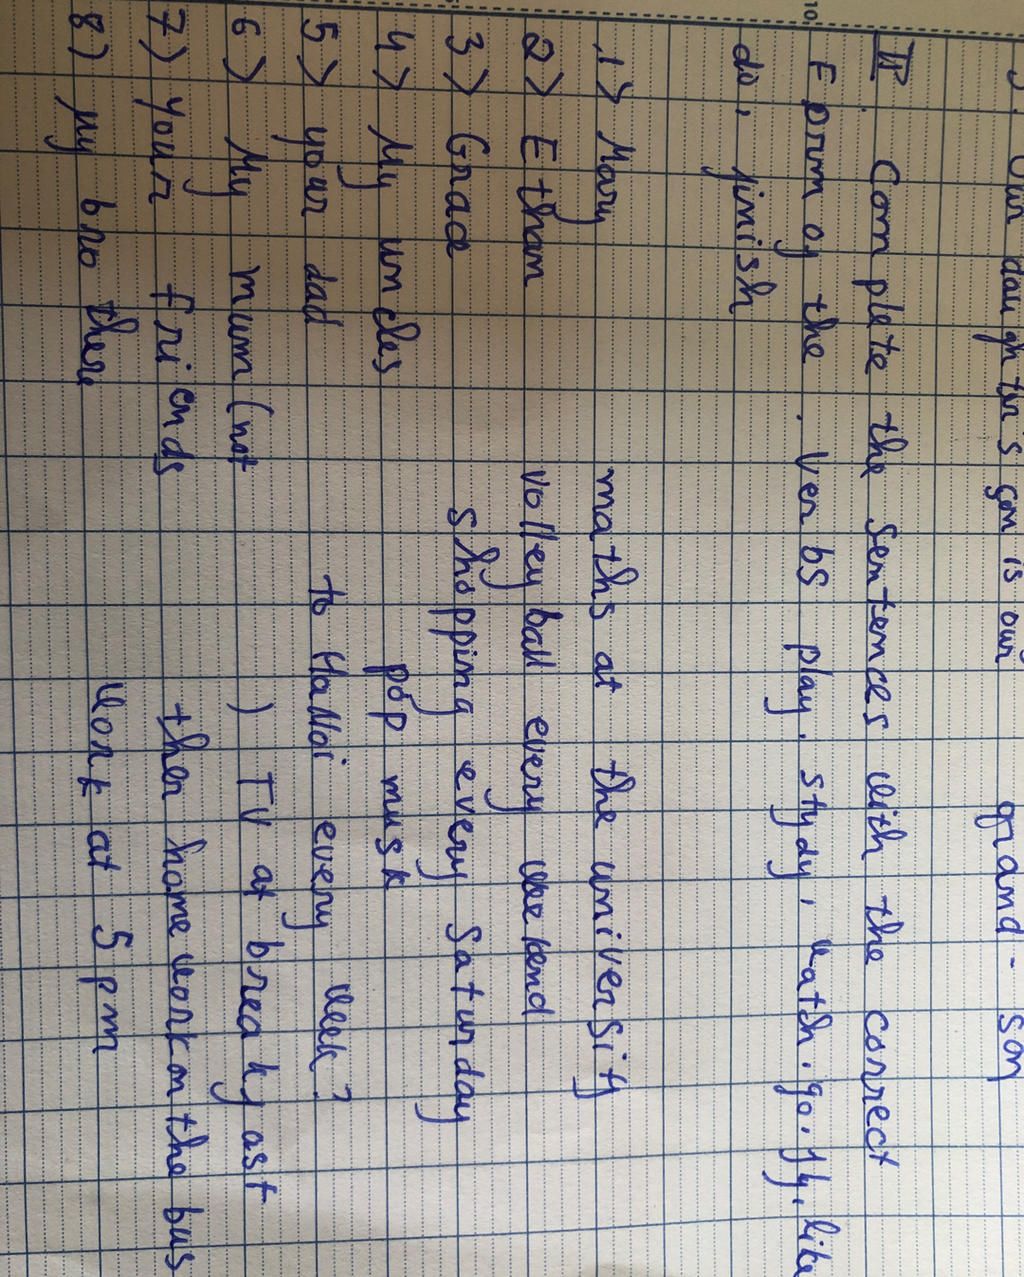 Our daughter's son is our grand-son
III Complete the sentences with the correct
Form of the verbs play. stydy, watch. go. fly. like
do, finish
1) Mary maths at the university
2) Etham volleyball every weekend
3) Grace shopping every Saturday
4) My uncles pop musk
5) your dad to HaNoi every week?
6) My mum (not ) TV at breakfast
7) your friends ther homework on the bus
8) My brother work at 5 pm